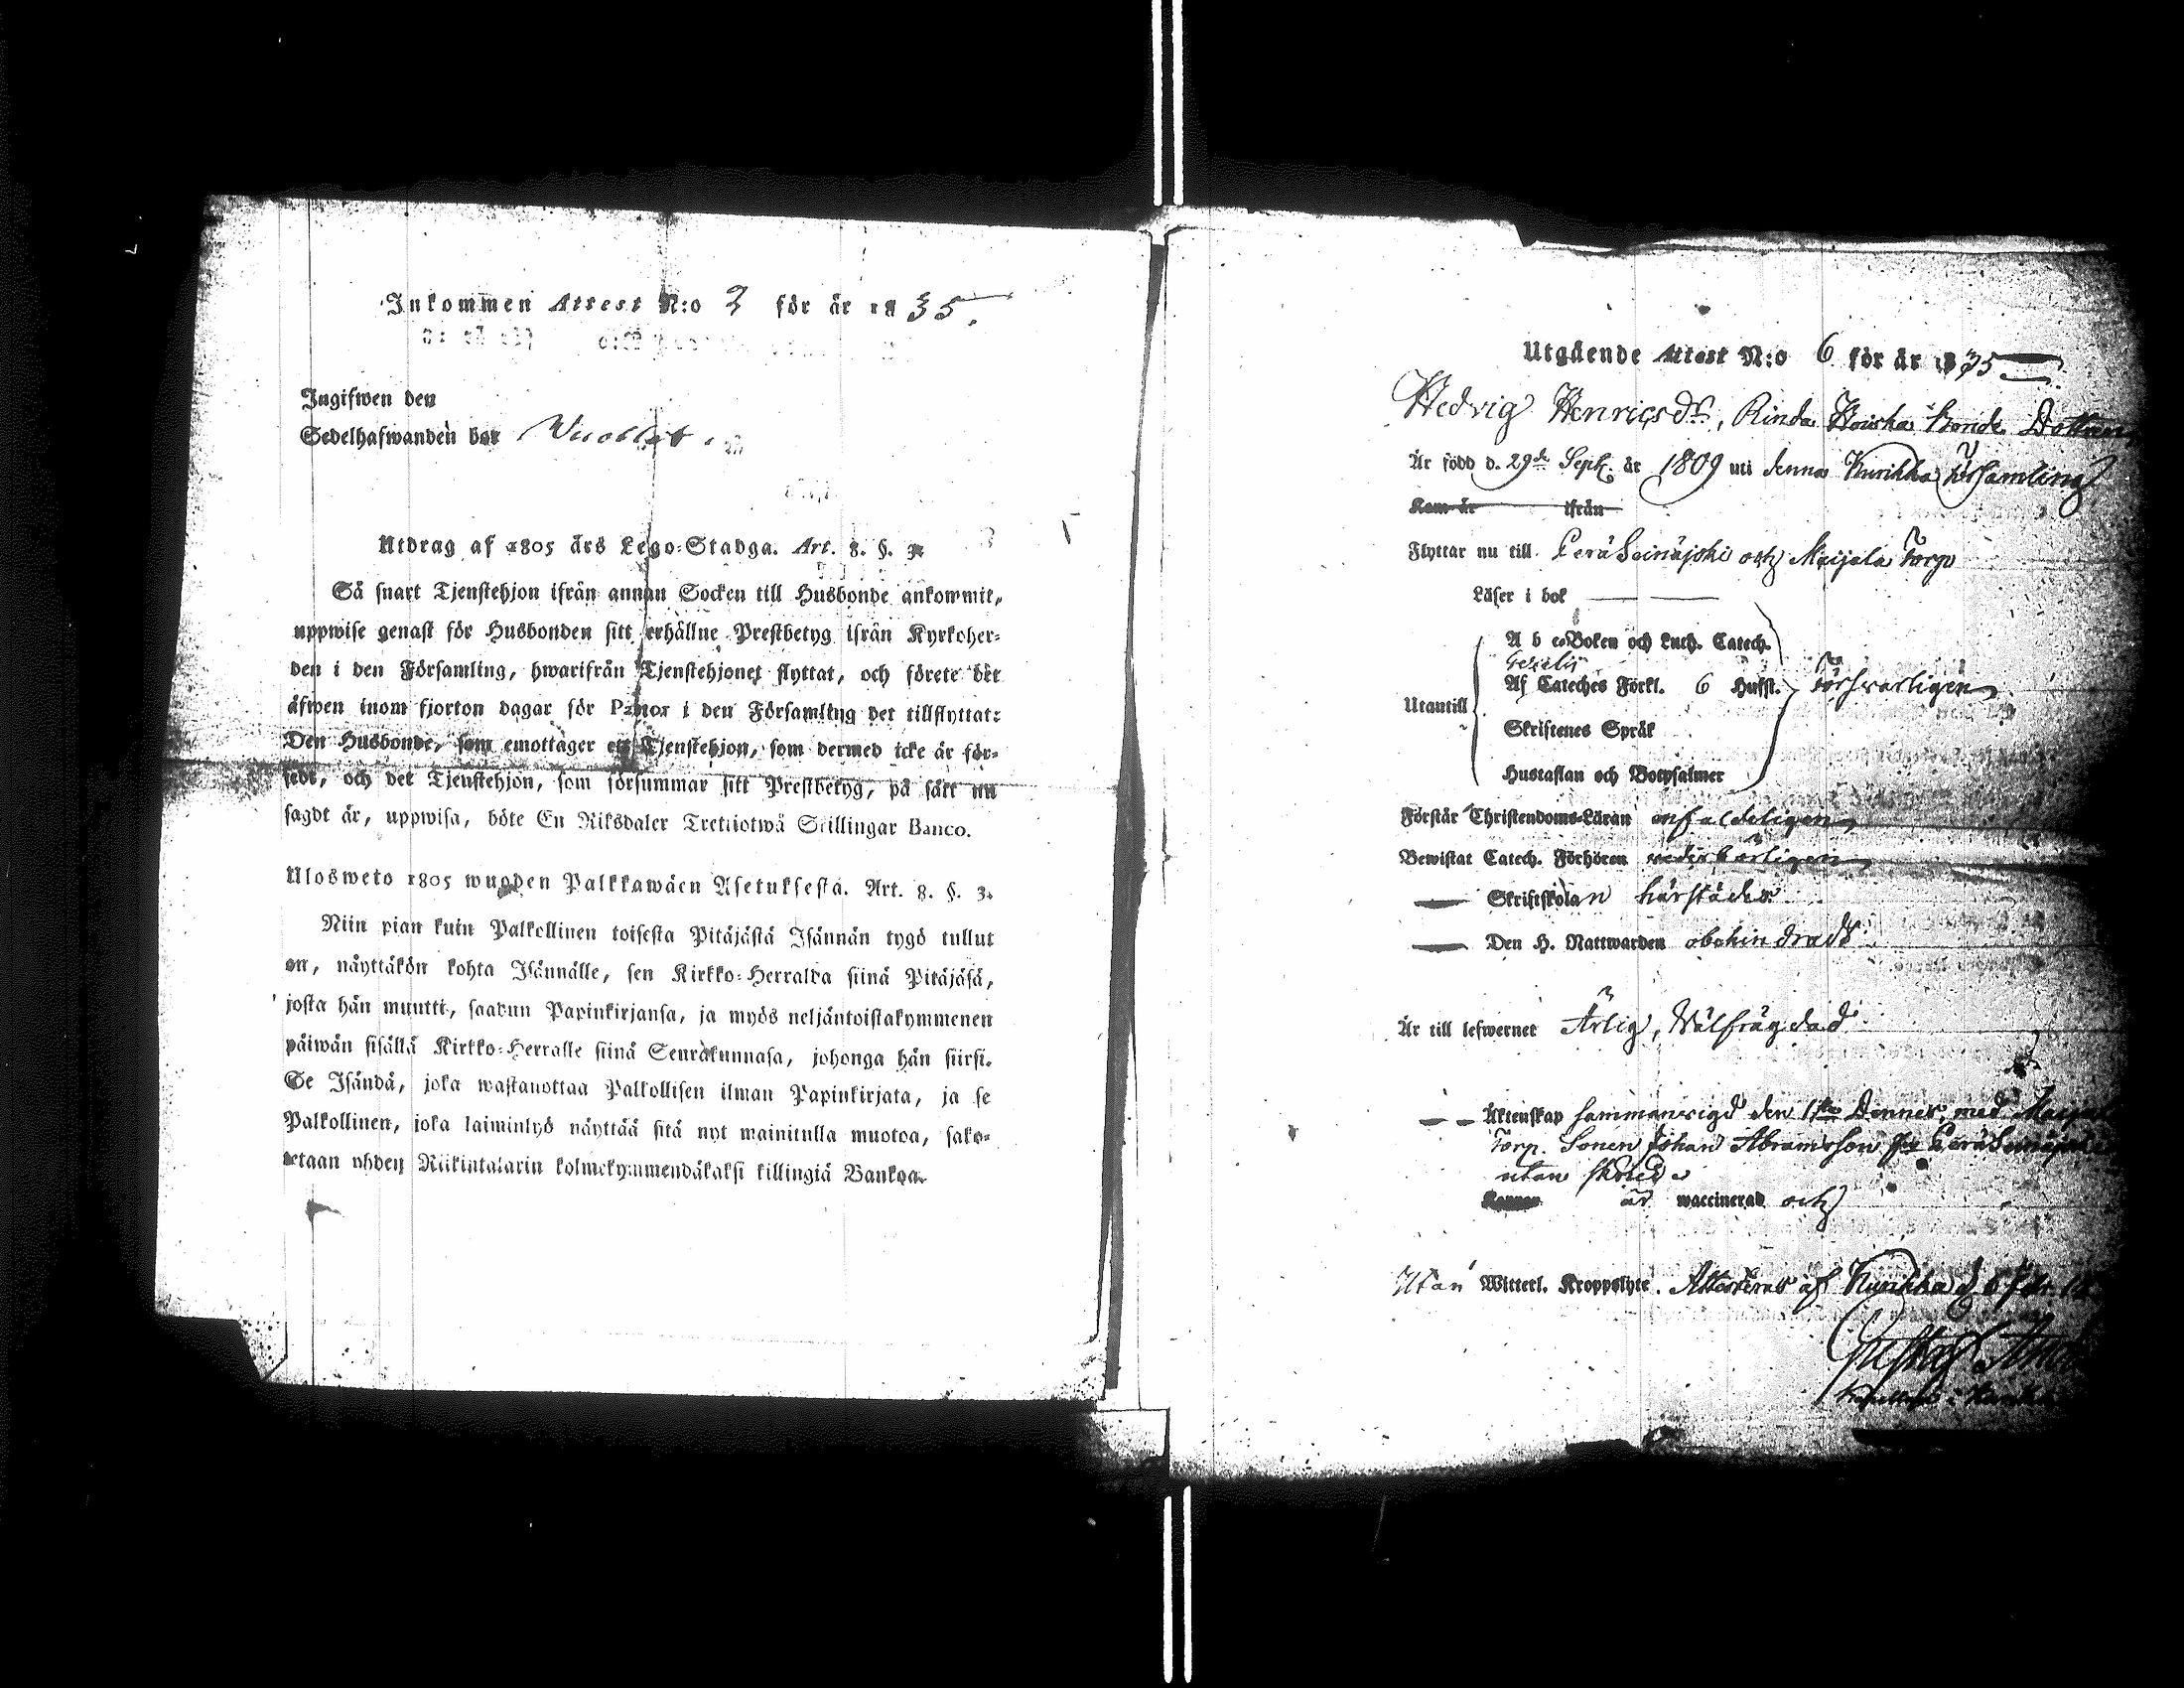 Inkommen Attest N:o 2 för år 1835.
Ingifwen den
Sedelhafwanden bor
Utdrag af 1805 års Lego-Stadga. Art. 8. §. 3.
Så snart Tjenstehjon ifrån annan Socken till Husbonde ankommit,
uppwise genast för Husbonden sitt erhållne Prestbetyg ifrån Kyrkoher-
den i den Församling, hwarifrån Tjenstehjonet flyttat, och förete det
äfwen inom fjorton dagar för Pastor i den Församling det tillflyttat:
Den Husbonde, som emottager ett Tjenstehjon, som dermed icke är för-
sedt, och det Tjenstehjon, som försummar sitt Prestbetyg, på sätt nu
sagdt är, uppwisa, böte En Riksdaler Trettiotwå Skillingar Banco.
Ulosweto 1805 wuoden Palkkawäen Asetuksesta. Art. 8. §. 3.
Niin pian kuin Palkollinen toisesta Pitäjästä Isännän tygö tullut
on, näyttäkön kohta Isännälle, sen Kirkko-Herralda siinä Pitäjäsä,
josta hän muutti, saadun Papinkirjansa, ja myös neljäntoistakymmenen
päiwän sisällä Kirkko-Herralle siinä Seurakunnasa, johonga hän siirsi.
Se Isändä, joka wastanottaa Palkollisen ilman Papinkirjata, ja se
Palkollinen, joka laiminlyö näyttää sitä nyt mainitulla muotoa, sako-
tetaan yhden Riikintalarin kolmekymmendäkaksi killingiä Bankoa.
Utgående Attest N:o 6 för år 1835
Hedvig Henricsdr, Rinda Koiska Bonde Dottern
Är född d. 29de Sept. år 1809 uti denna Kurikka församling
Kom år ifrån
Flyttar nu till PeräSeinäjoki och Maijala Torp
Läser i bok
A b c-Boken och Luth. Catech.
Af Cateches Förkl. 6 Hufst. försvarligen
Utantill
Skriftenes Språk
Hustaflan och Botpsalmer
Förstår Christendoms-Läran enfaldeligen
Bewistat Catech. Förhören vederbörligen
Skriftskolan härstädes
Den H. Nattwarden obehindradt
Är till lefwernet Ärlig, Välfrägdad
Äktenskap sammanvigd den 1ste Dennes med Maijala
Torp. Sonen Johan Abramsson fr PeräSeinäjoki
utan
är waccinerad och
Utan Witterl. Kroppslyte. Attesteras af Kurikka d 6 Febr 18
Gustaf
Kapellan i Kurikka